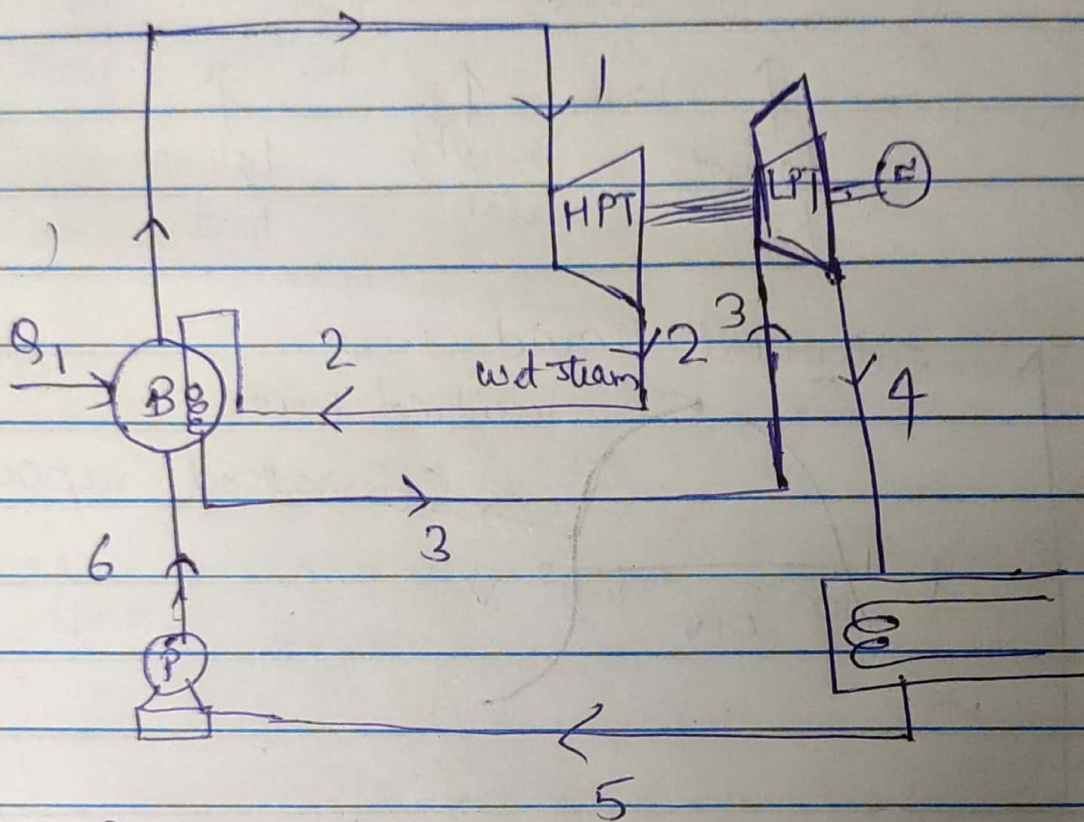 1
HPT
LPT
3
2
Q1
B
2
wet steam
4
3
6
P
5